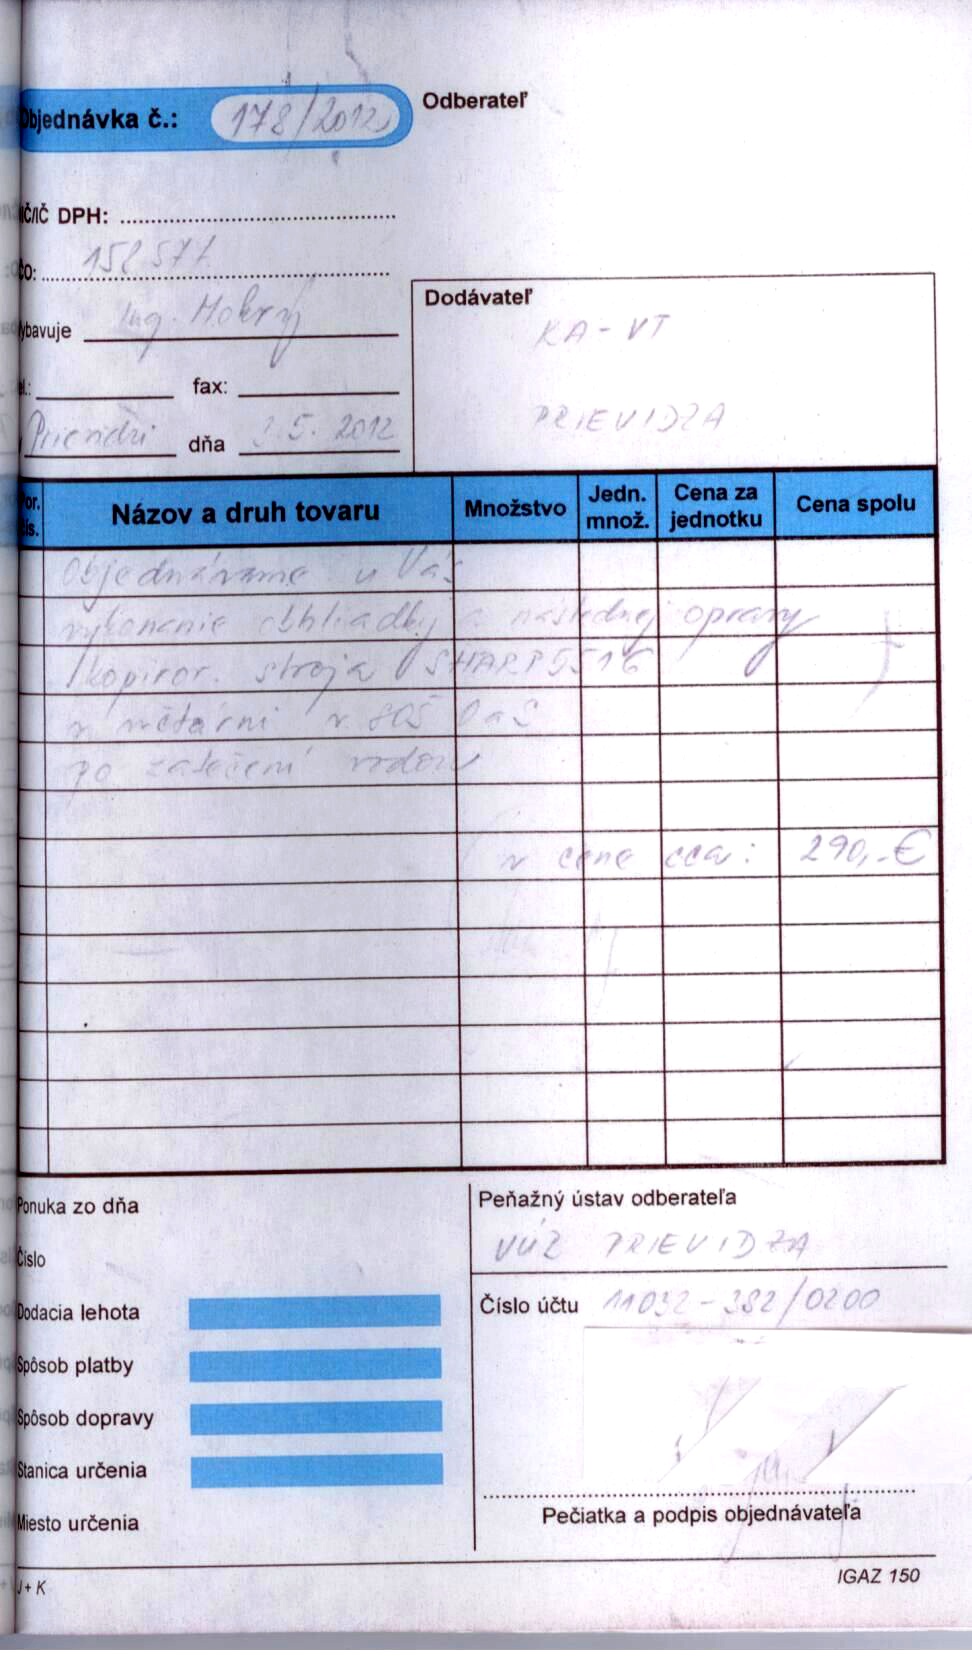 Objednávka č.: 178/2012
Odberateľ
IČ/IČ DPH:
IČO: 158577
Vybavuje Ing. Mokrý
Dodávateľ
KA-VT
PRIEVIDZA
tel.: fax:
Prievidzi dňa 3.5. 2012
Por. čís.
Názov a druh tovaru
Množstvo
Jedn. množ.
Cena za jednotku
Cena spolu
Objednávame u Vás
vykonanie obhliadky a následnej opravy
kopírov. stroja SHARP 5516
v učtárni v SOŠ OaS
po zatečení vodou
v cene cca: 290,-€
Ponuka zo dňa
Číslo
Dodacia lehota
Spôsob platby
Spôsob dopravy
Stanica určenia
Miesto určenia
Peňažný ústav odberateľa
VÚB PRIEVIDZA
Číslo účtu 11032-382/0200
Pečiatka a podpis objednávateľa
J + K
IGAZ 150